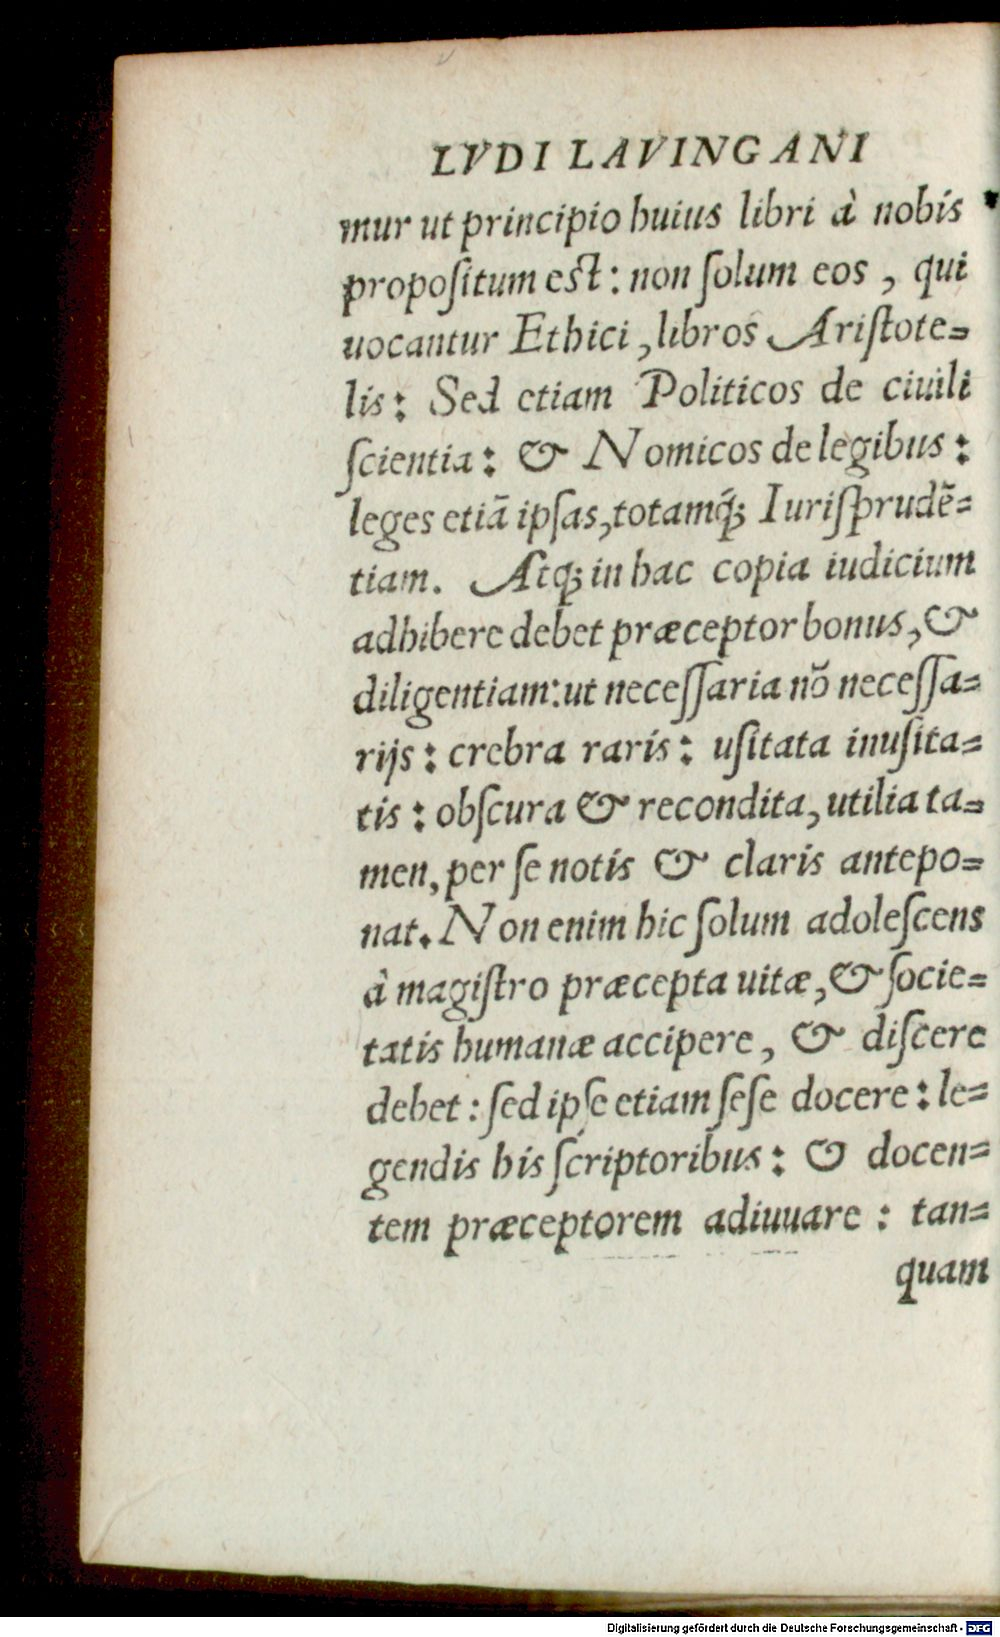 LVDI LAVINGANI
mur ut principio huius libri à nobis
propoſitum eſt: non ſolum eos, qui
uocantur Ethici, libros Ariſtote=
lis: Sed etiam Politicos de ciuili
ſcientia: & Nomicos de legibus:
leges etiã ipſas, totamq́; Iuriſprudẽ=
tiam. Atq; in hac copia iudicium
adhibere debet præceptor bonus, &
diligentiam: ut neceſſaria nõ neceſſa=
rijs: crebra raris: uſitata inuſita=
tis: obſcura & recondita, utilia ta=
men, per ſe notis & claris antepo=
nat. Non enim hic ſolum adoleſcens
à magiſtro præcepta uitæ, & ſocie=
tatis humanæ accipere, & diſcere
debet: ſed ipſe etiam ſeſe docere: le=
gendis his ſcriptoribus: & docen=
tem præceptorem adiuuare: tan=
quam
Digitalisierung gefördert durch die Deutsche Forschungsgemeinschaft - DFG